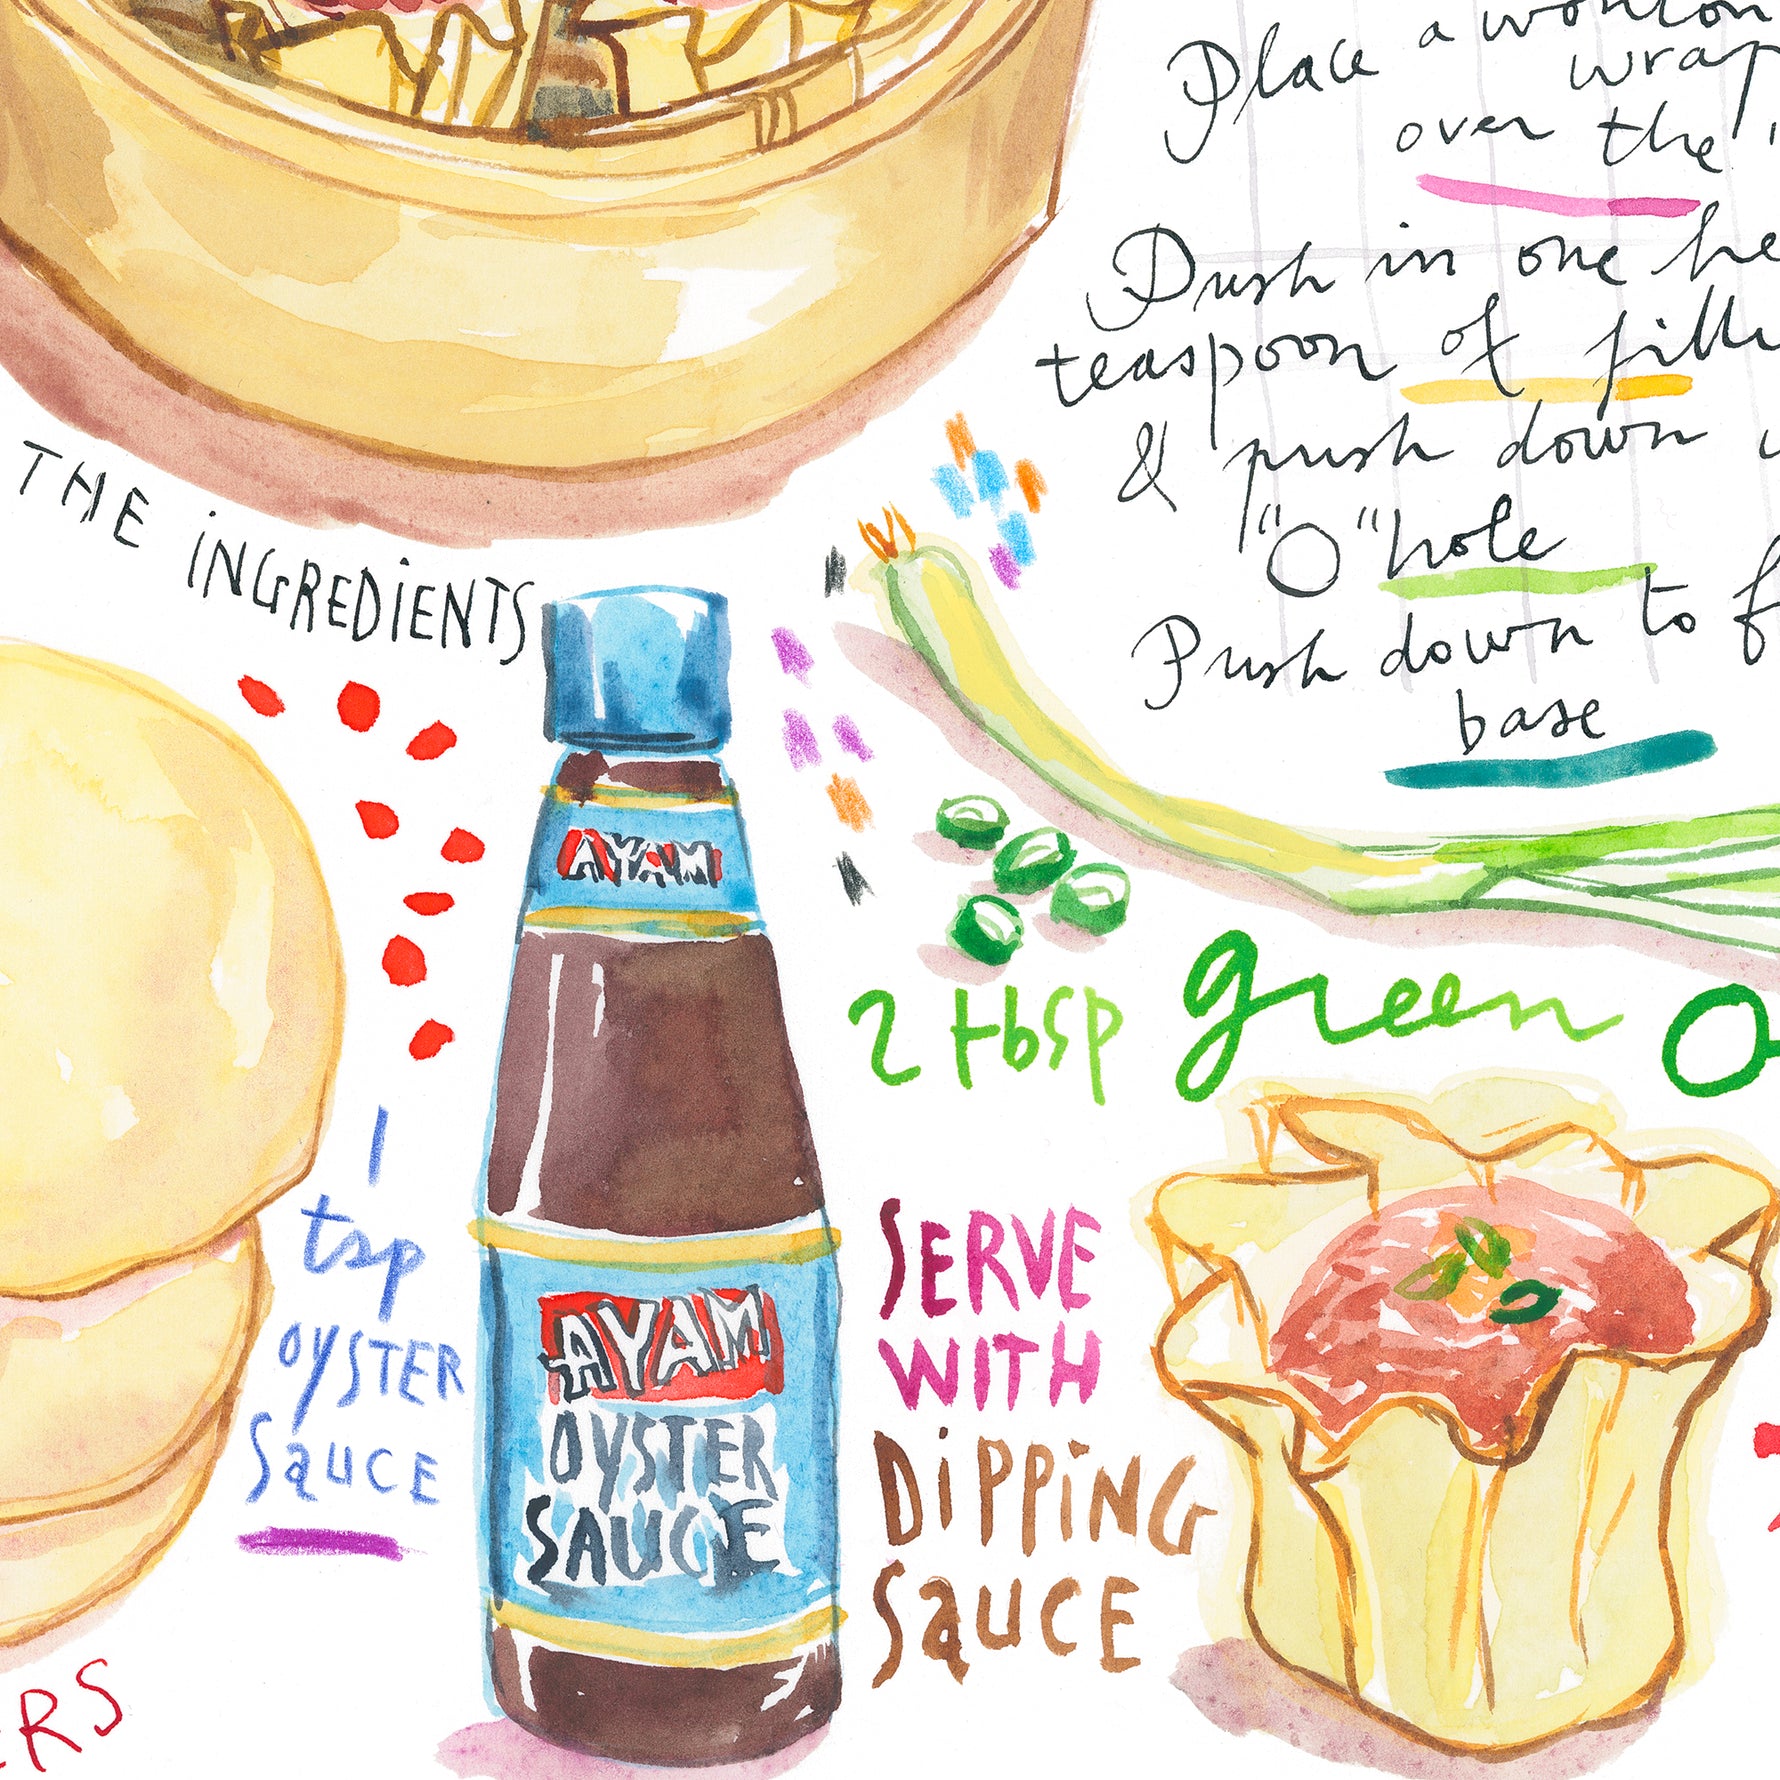 Place a wonton
wrap
over the "
Push in one he
teaspoon of filli
& push down
"O" hole
Push down to f
base
THE iNGREDiENTS
AYAM
2 tbsp green O
1
tsp
OYSTER
SauCE
AYAM
OYSTER
SAUCE
SERVE
WITH
DiPPiNG
SauCE
ERS